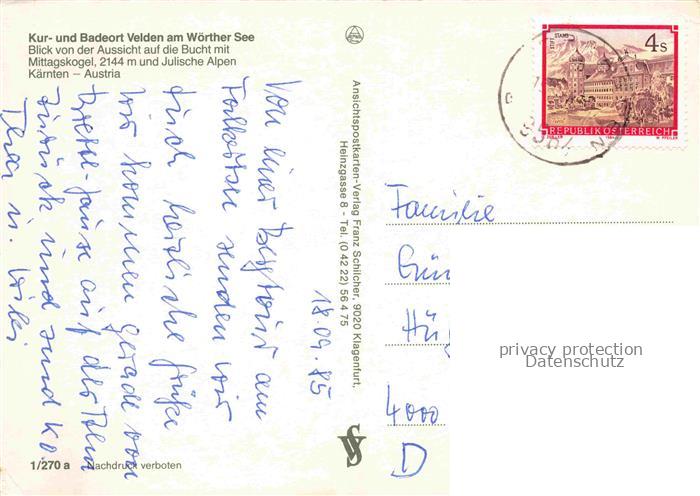 Kur- und Badeort Velden am Wörther See
Blick von der Aussicht auf die Bucht mit
Mittagskogel, 2144 m und Julische Alpen
Kärnten – Austria
18.09.85
Von einer Bergtour am
Falkert senden wir
Euch herzliche Grüße
Wir kommen gerade von
Brettl-Jause auf der Alm
zurück und sind k.o.
Thea u. Willi
1/270 a Nachdruck verboten
Ansichtspostkarten-Verlag Franz Schilcher, 9020 Klagenfurt,
Heinzgasse 8 - Tel. (0 42 22) 56 4 75
STIFT STAMS
4 S
REPUBLIK ÖSTERREICH
Familie
Gün
Hüg
4000
D
privacy protection
Datenschutz